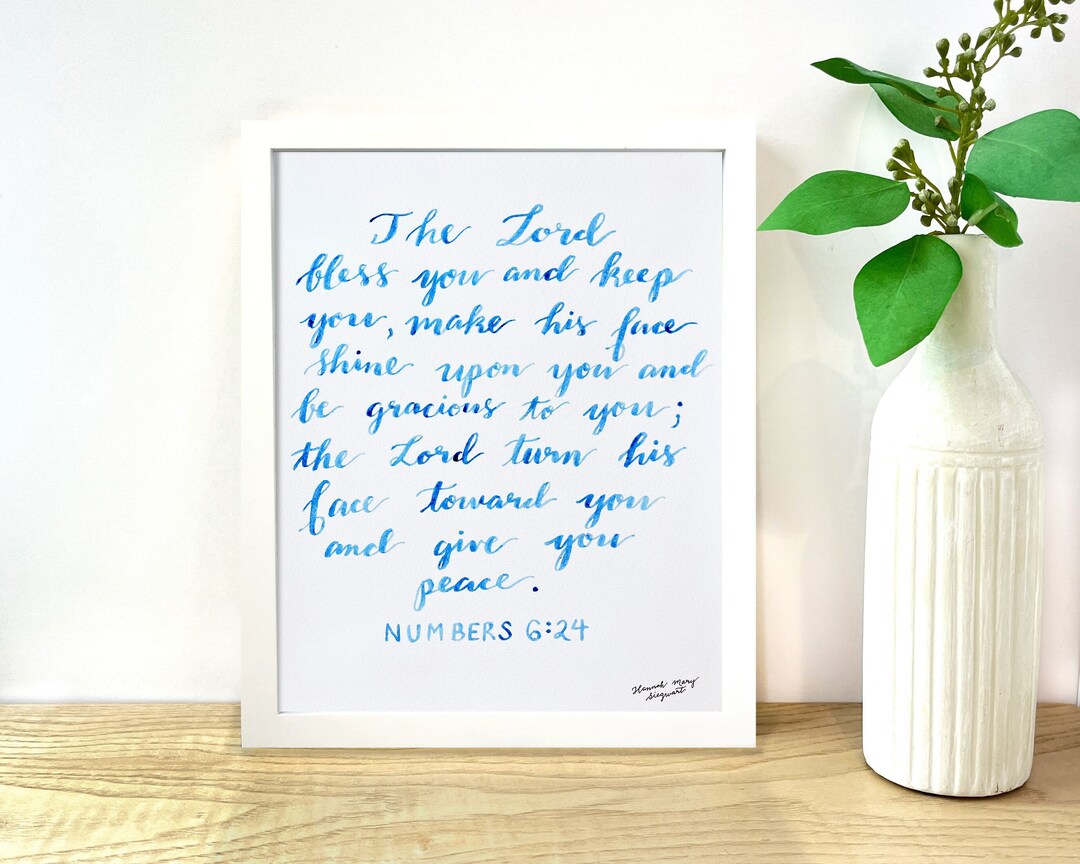 The Lord
bless you and keep
you, make his face
shine upon you and
be gracious to you;
the Lord turn his
face toward you
and give you
peace.
NUMBERS 6:24
Hannah Mary
Siegwart